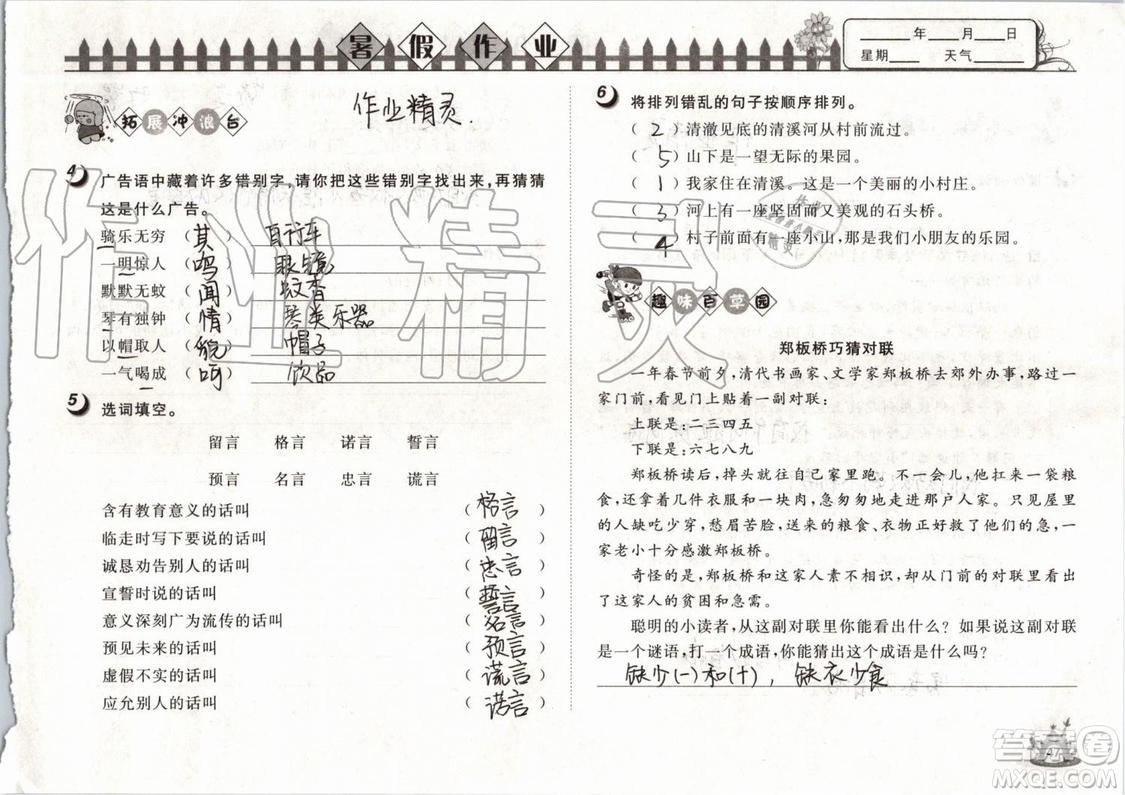 暑假作业
____年____月____日
星期____ 天气____
拓展冲浪台
作业精灵.
4 广告语中藏着许多错别字,请你把这些错别字找出来,再猜猜
这是什么广告。
骑乐无穷 (其) 自行车
一明惊人 (鸣) 眼镜
默默无蚊 (闻) 蚊香
琴有独钟 (情) 琴类乐器
以帽取人 (貌) 帽子
一气喝成 (呵) 饮品
5 选词填空。
留言 格言 诺言 誓言
预言 名言 忠言 谎言
含有教育意义的话叫 (格言)
临走时写下要说的话叫 (留言)
诚恳劝告别人的话叫 (忠言)
宣誓时说的话叫 (誓言)
意义深刻广为流传的话叫 (名言)
预见未来的话叫 (预言)
虚假不实的话叫 (谎言)
应允别人的话叫 (诺言)
6 将排列错乱的句子按顺序排列。
(2)清澈见底的清溪河从村前流过。
(5)山下是一望无际的果园。
(1)我家住在清溪。这是一个美丽的小村庄。
(3)河上有一座坚固而又美观的石头桥。
(4)村子前面有一座小山,那是我们小朋友的乐园。
趣味百草园
郑板桥巧猜对联
一年春节前夕,清代书画家、文学家郑板桥去郊外办事,路过一
家门前,看见门上贴着一副对联:
上联是:二三四五
下联是:六七八九
郑板桥读后,掉头就往自己家里跑。不一会儿,他扛来一袋粮
食,夹着几件衣服和一块肉,急匆匆地走进那户人家。只见屋里
的人缺吃少穿,愁眉苦脸,送来的粮食、衣物正好解了他们的急,一
家老小十分感激郑板桥。
奇怪的是,郑板桥和这家人素不相识,却从门前的对联里看出
了这家人的贫困和急需。
聪明的小读者,从这副对联里你能看出什么?如果说这副对联
是一个谜语,打一个成语,你能猜出这个成语是什么吗?
缺少(一)和(十),缺衣少食
47
作业精灵
答案圈
MXQE.COM